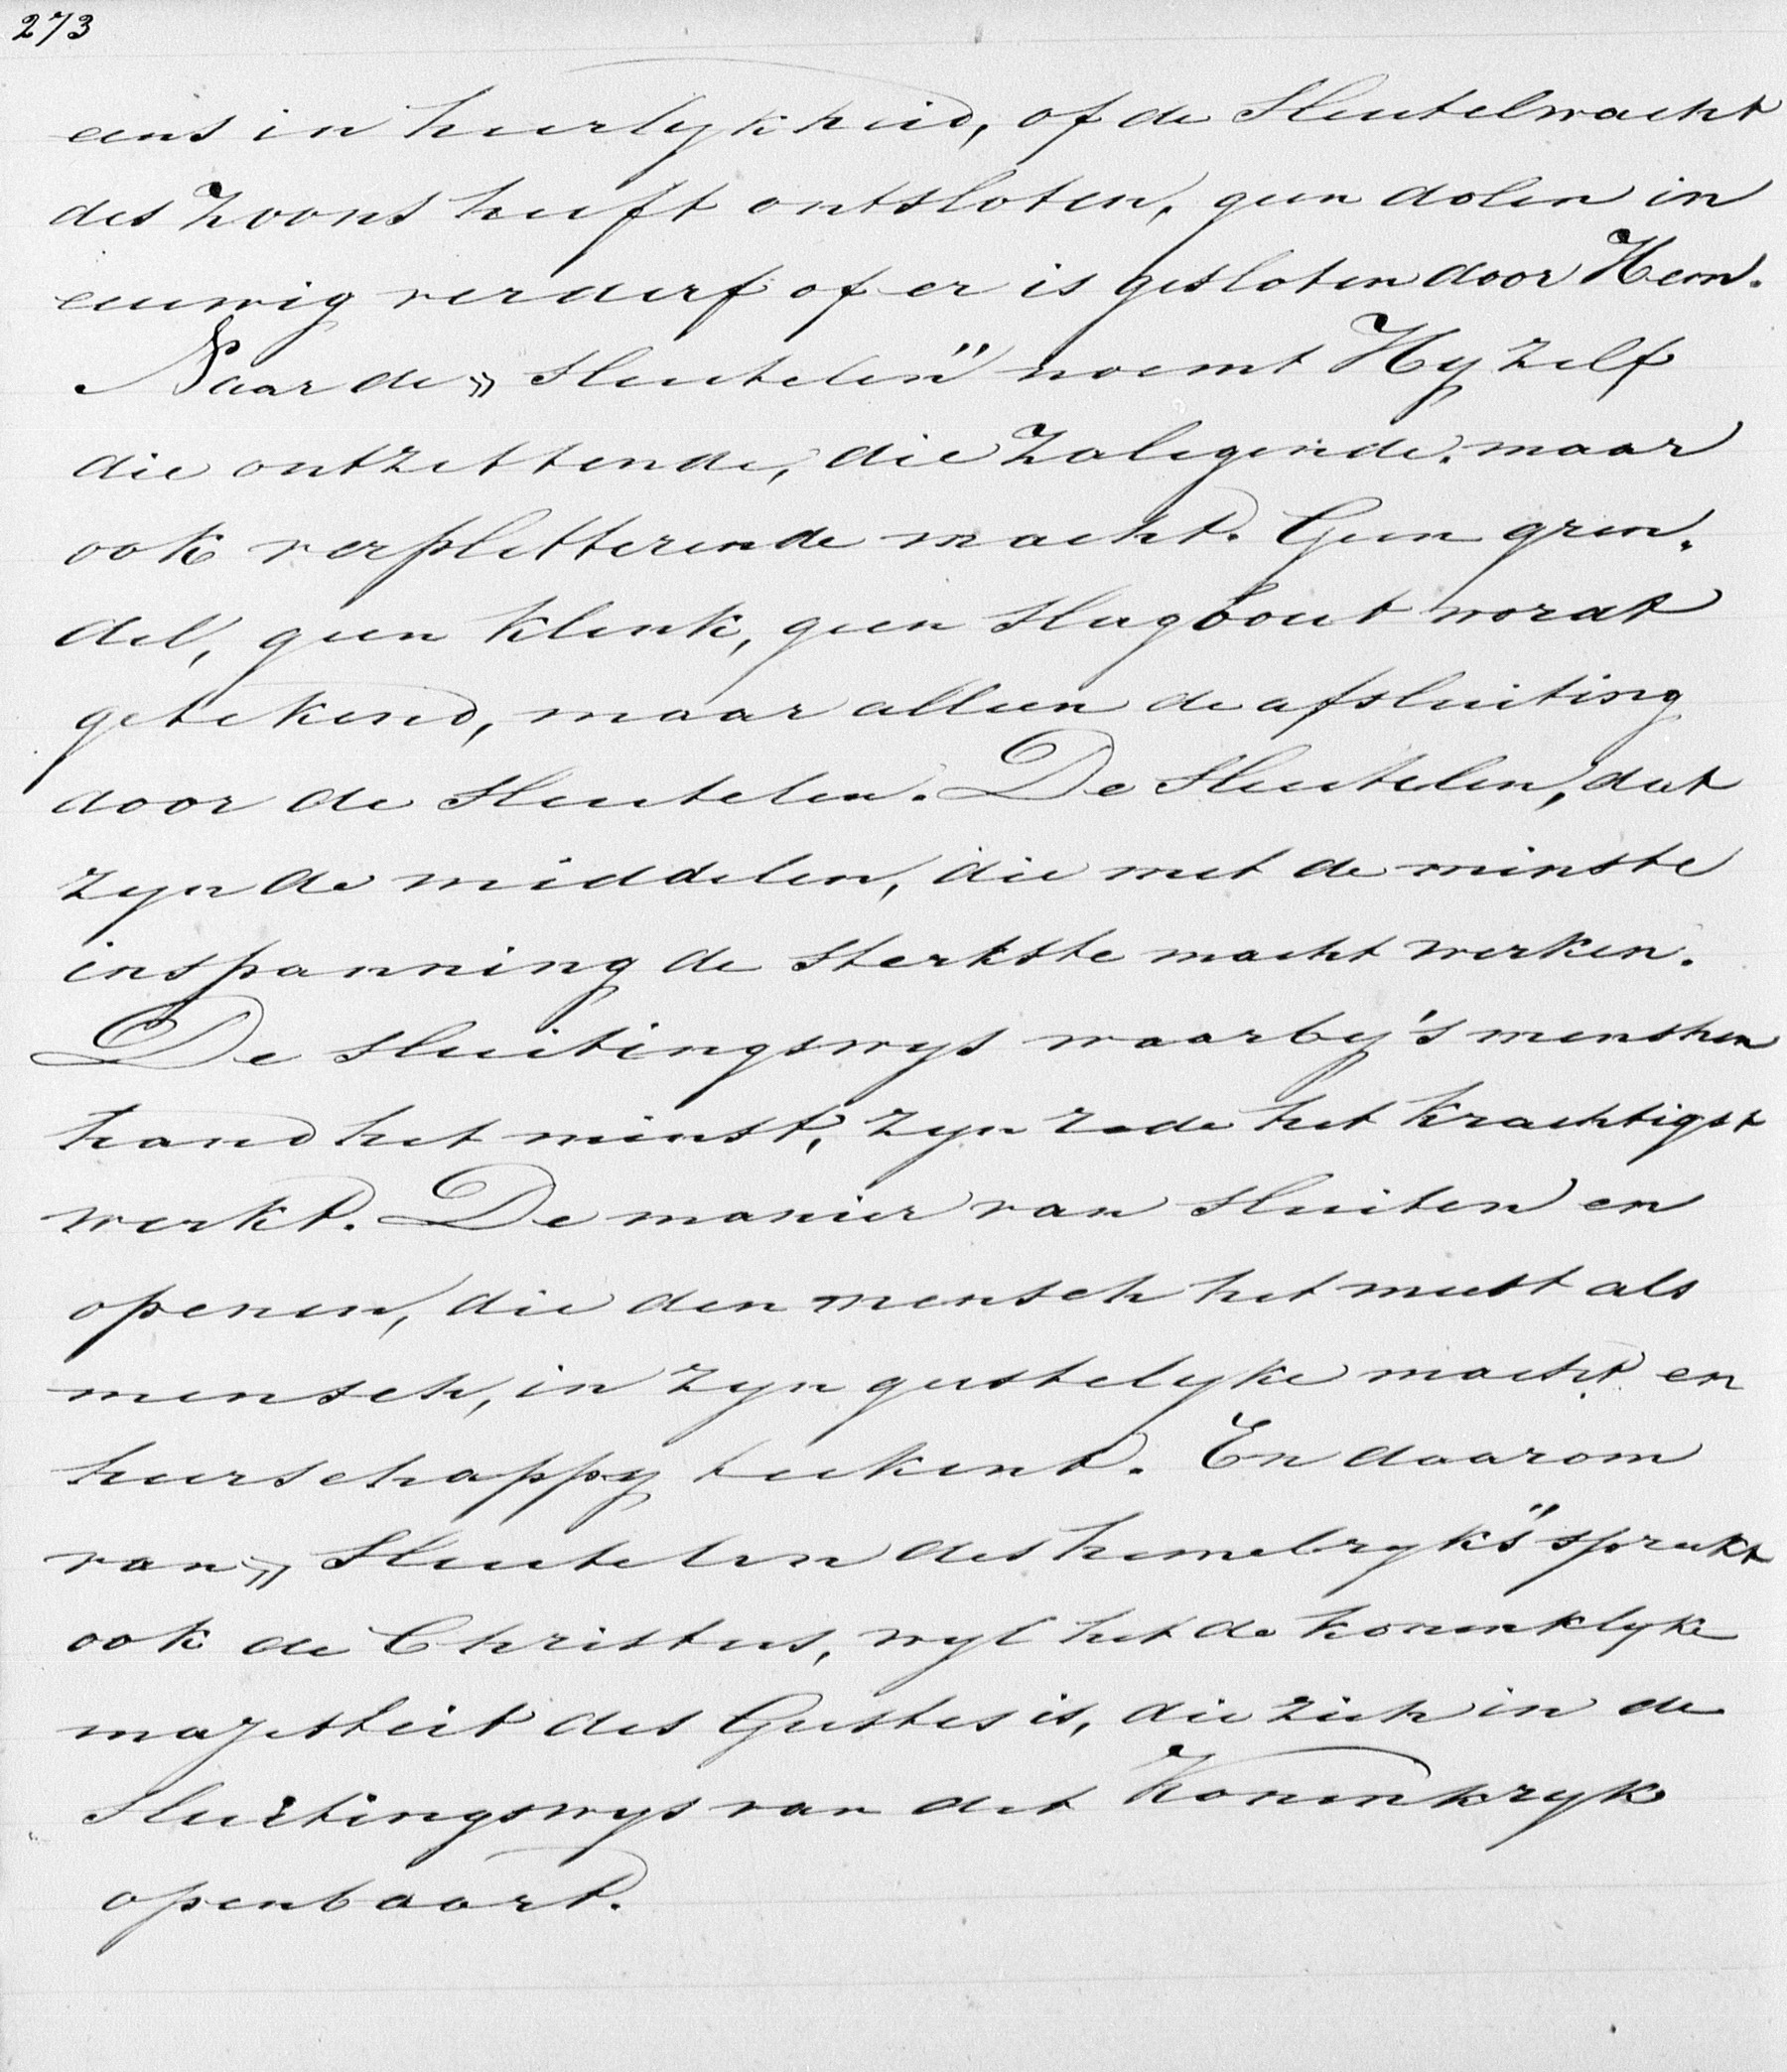 273
eens in heerlykheid, of de Sleutelmacht
des Zoons heeft ontsloten, geen dolen in
eeuwig verderf of er is gesloten door Hem.
Naar de „Sleutelen" noemt Hy zelf
die ontzettende, die zaligende, maar
ook verpletterende macht. Geen gren„
del, geen klink, geen slagbout wordt
getekend, maar alleen de afsluiting
door de sleutelen. De Sleutelen, dat
zyn de middelen, die met de minste
inspanning de sterkste macht werken.
De sluitingswys waarby 's menschen
hand het minst, zyn rede het krachtigst
werkt. De manier van sluiten en
openen, die den mensch het meest als
mensch, in zyn geestelyke macht en
heerschappy teekent. En daarom
van „Sleutelen des hemelryks" spreekt
ook de Christus, wyl het de koninklyke
majesteit des Geestes is, die zich in de
Sluitingswys van dit Koninkryk
openbaart.